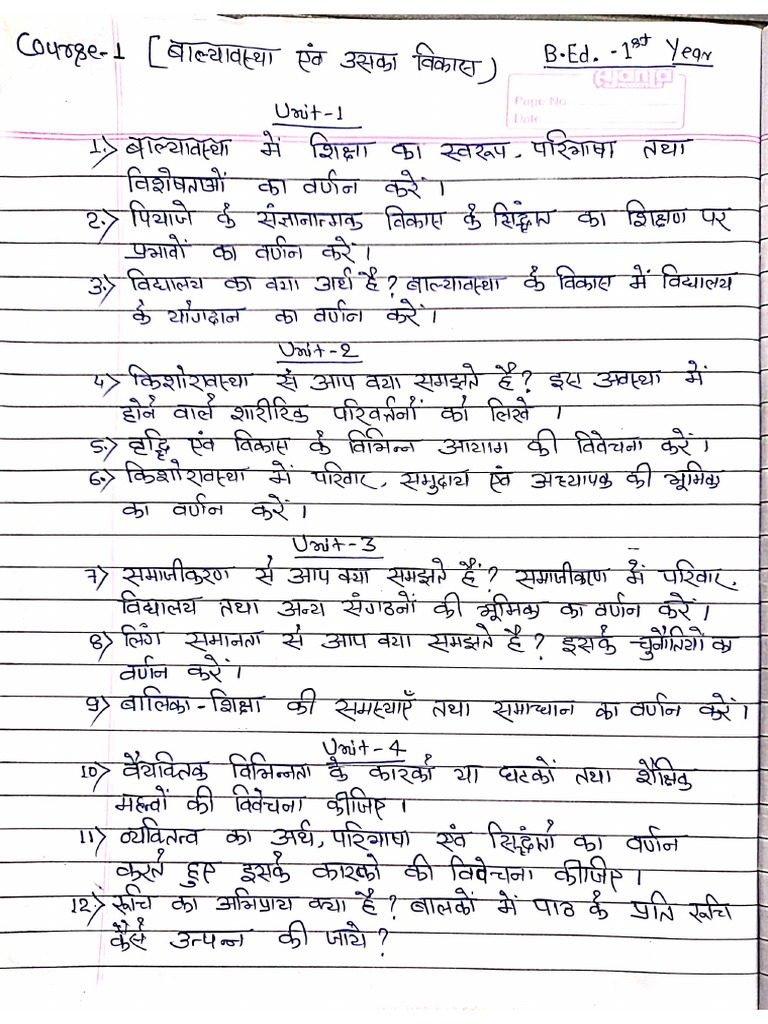 Course-1 [बाल्यावस्था एवं उसका विकास) B.Ed. -1st Year
Page No
Date
Unit-1
1.> बाल्यावस्था में शिक्षा का स्वरूप, परिभाषा तथा
विशेषताओं का वर्णन करें।
2.> पियाजे के संज्ञानात्मक विकास के सिद्धांत का शिक्षण पर
प्रभावों का वर्णन करें।
3.> विद्यालय का क्या अर्थ है? बाल्यावस्था के विकास में विद्यालय
के योगदान का वर्णन करें।
Unit-2
4> किशोरावस्था से आप क्या समझते है? इस अवस्था में
होने वाले शारीरिक परिवर्त्तनों को लिखे।
5.> वृद्धि एवं विकास के विभिन्न आयाम की विवेचना करें।
6.> किशोरावस्था में परिवार, समुदाय एवं अध्यापक की भूमिका
का वर्णन करें।
Unit-3
7> समाजीकरण से आप क्या समझते हैं? समाजीकरण में परिवार,
विद्यालय तथा अन्य संगठनों की भूमिका का वर्णन करें।
8> लिंग समानता से आप क्या समझते है? इसके चुनौतियों का
वर्णन करें।
9> बालिका-शिक्षा की समस्याएँ तथा समाधान का वर्णन करें।
Unit-4
10> वैयक्तिक विभिन्नता के कारकों या घटकों तथा शैक्षिक
महत्वों की विवेचना कीजिए।
11> व्यक्तित्व का अर्थ, परिभाषा एवं सिद्धांतों का वर्णन
करते हुए इसके कारको की विवेचना कीजिए।
12.> रूचि का अभिप्राय क्या है? बालकों में पाठ के प्रति रूचि
कैसे उत्पन्न की जाये?